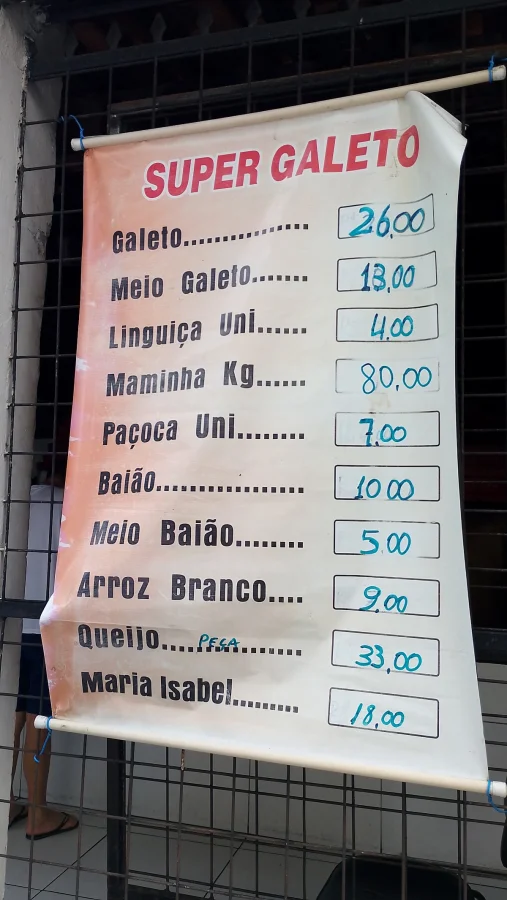 SUPER GALETO
Galeto................ 26,00
Meio Galeto....... 13,00
Linguiça Uni...... 4,00
Maminha Kg...... 80,00
Paçoca Uni......... 7,00
Baião................... 10 00
Meio Baião......... 5 00
Arroz Branco.... 9,00
Queijo.... PEÇA ........ 33,00
Maria Isabel......... 18,00